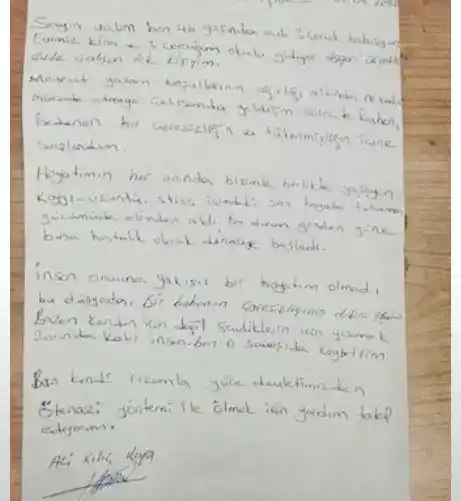 Sayın valim ben 46 yaşındayım 3 çocuk babasıyım
Evimiz kira ve 3 çocuğum okula gidiyor asgari ücretle
evde çalışan tek kişiyim.
Mevcut yaşam koşullarının ağırlığı altında ne kadar
mücadele etmeye çalışsamda
bedenen bir çaresizliğin ve tükenmişliğin içine
sürüklendim.
Hayatımın her anında bizimle birlikte yaşayan
Kaygı-üzüntü, stres son hayata tutunma
gücümüzde elimden aldı. Bu durum günden güne
bana hastalık olarak dönmeye başladı.
insan onuruna yakışır bir hayatım olmadı
bu dünyada. Bir babanın çaresizliğinin
Bazen kendin için değil sevdiklerin için yaşamak
zorunda kalır insan. ben o savaşıda kaybettim
Ben kendi rızamla yüce devletimizden
Ötenazi yöntemi ile ölmek için yardım talep
ediyorum.
Ali Kılıç Kaya